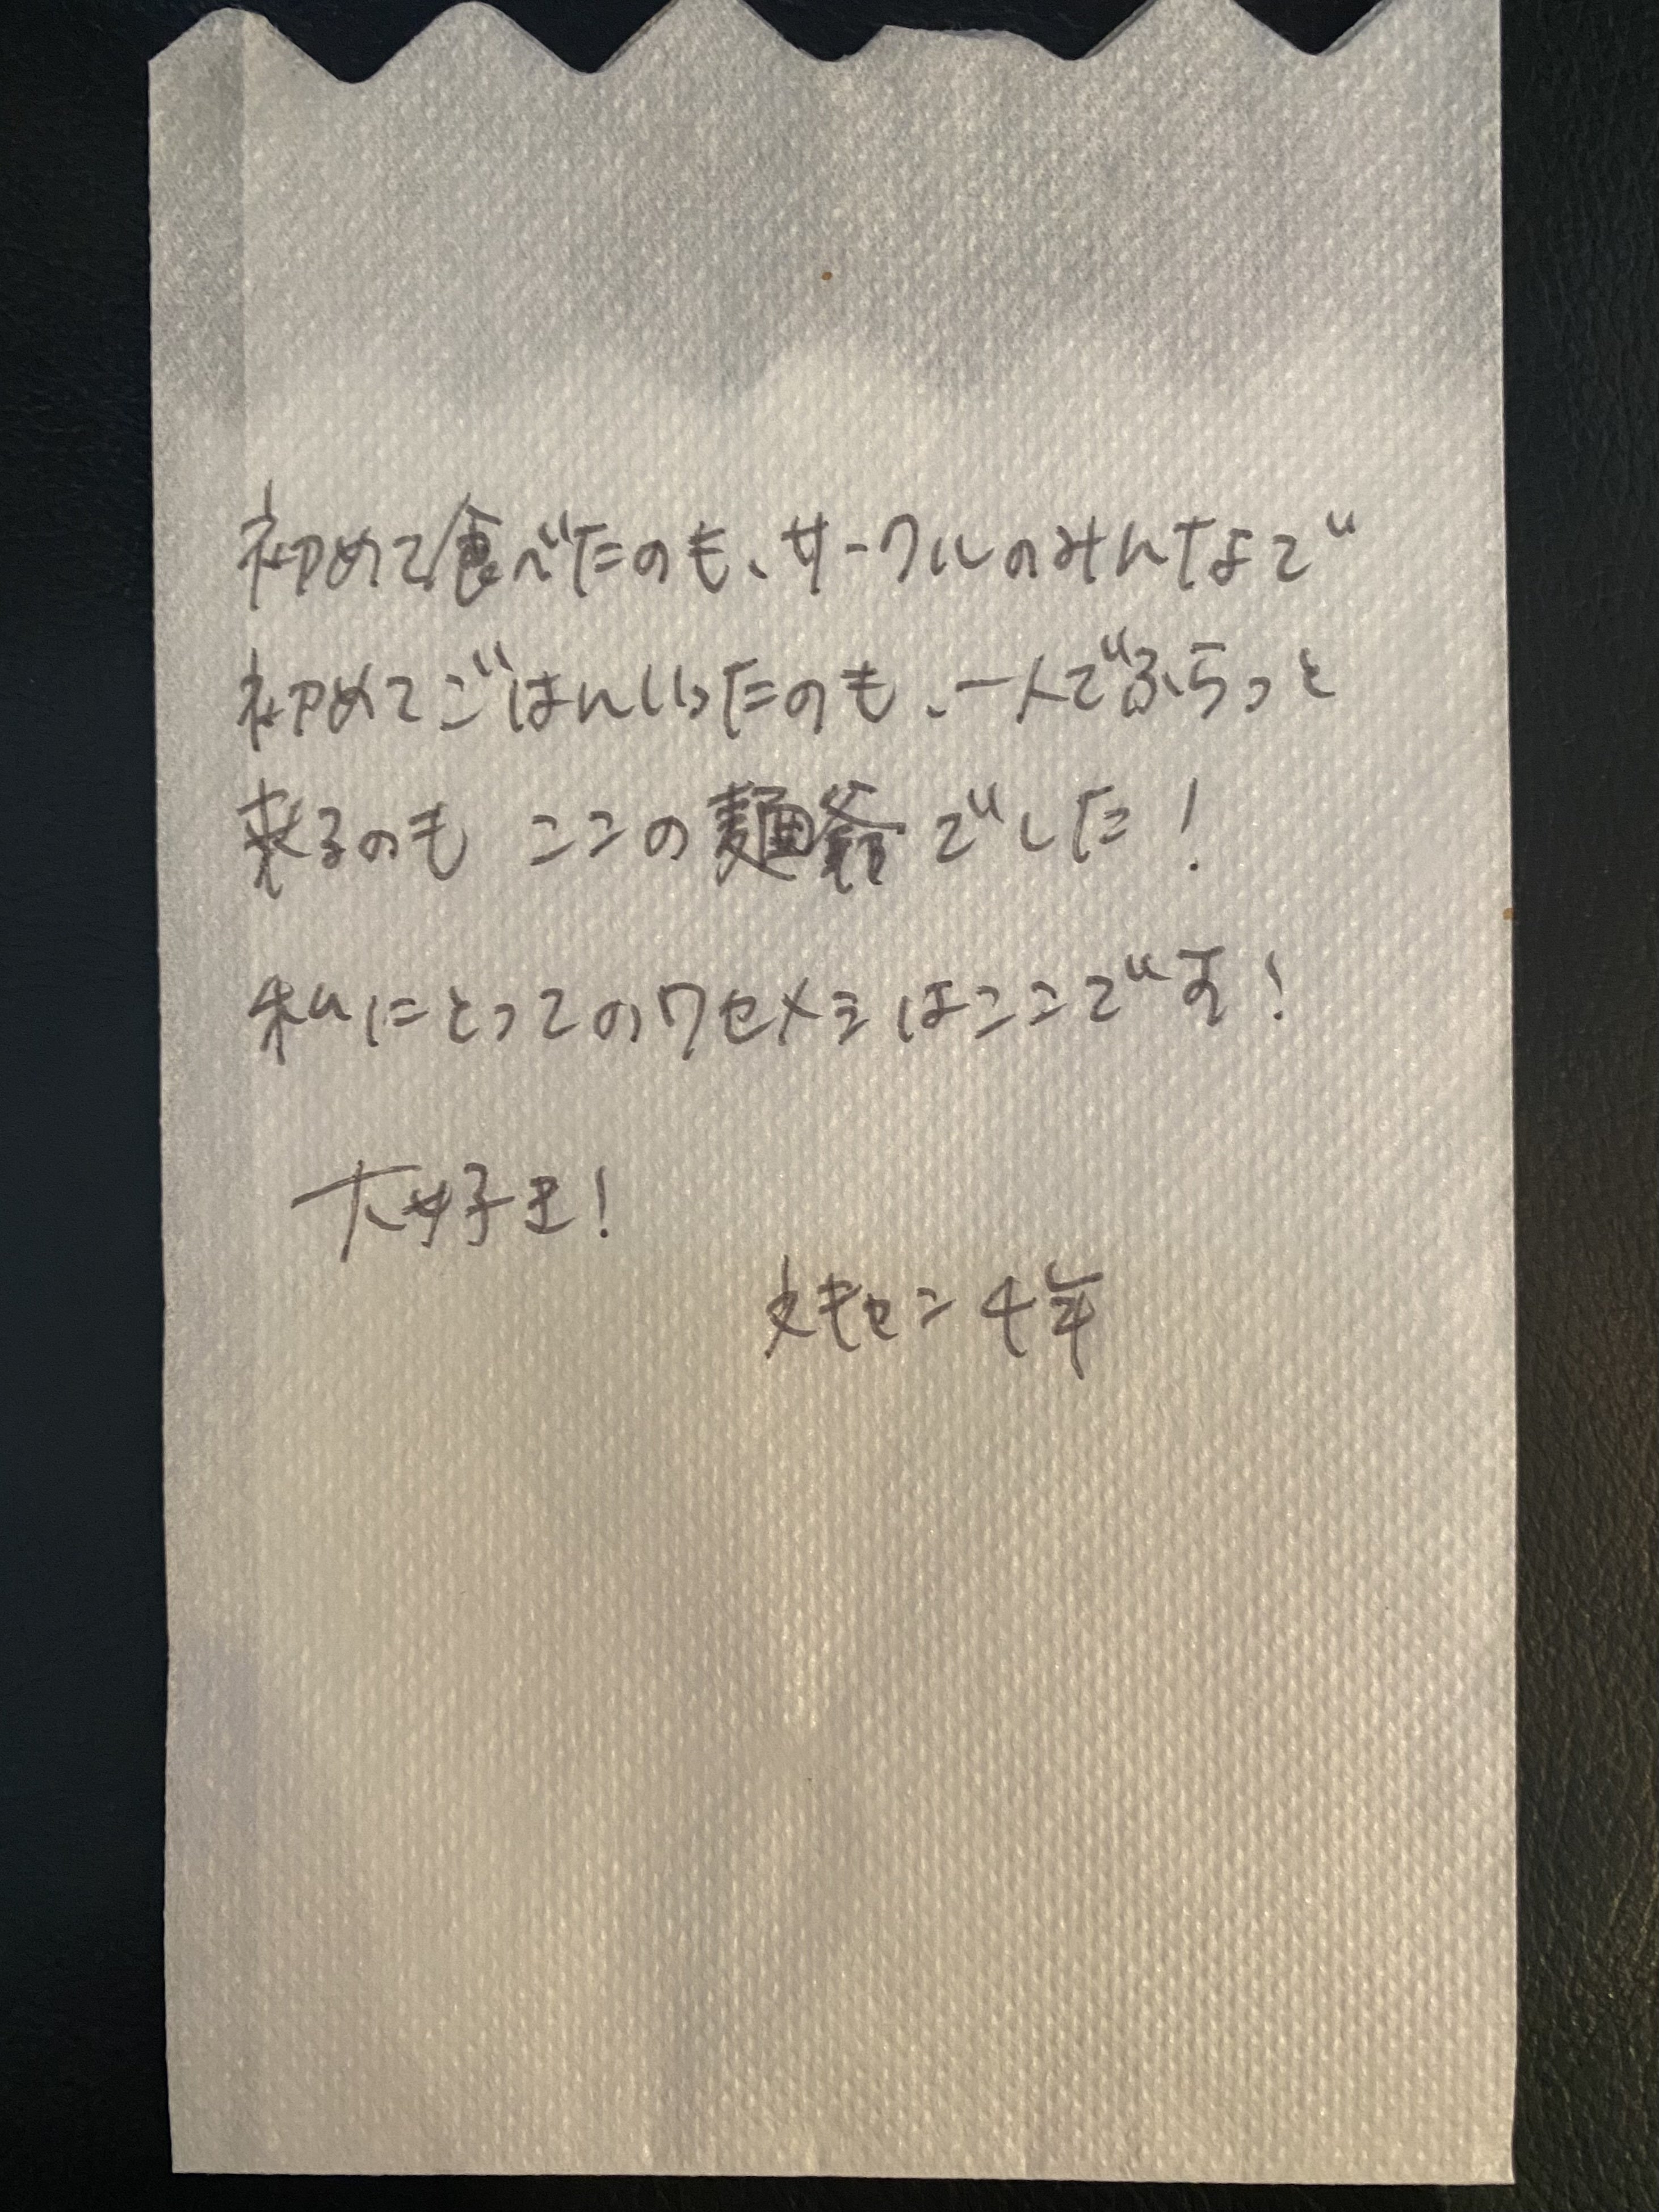 初めて食べたのも、サークルのみんなで
初めてごはんいったのも、一人でふらっと
来るのも ここの麺爺でした!
私にとってのワセメシはここです!
大好き!
文キャン4年